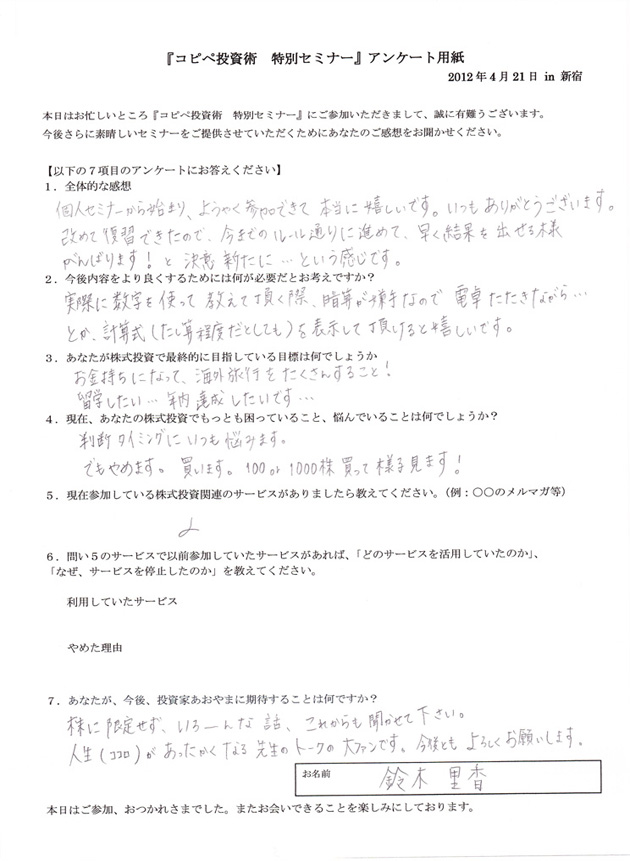 『コピペ投資術　特別セミナー』アンケート用紙
2012年4月21日 in 新宿
本日はお忙しいところ『コピペ投資術　特別セミナー』にご参加いただきまして、誠に有難うございます。
今後さらに素晴しいセミナーをご提供させていただくためにあなたのご感想をお聞かせください。
【以下の7項目のアンケートにお答えください】
1．全体的な感想
個人セミナーから始まり、ようやく参加できて 本当に嬉しいです。いつもありがとうございます。
改めて復習できたので、今までのルール通りに進めて、早く結果を出せる様
がんばります！と 決意 新たに…という感じです。
2．今後内容をより良くするためには何が必要だとお考えですか？
実際に数字を使って 教えて頂く際、暗算が苦手なので 電卓たたきながら…
とか、計算式(たし算程度だとしても)を表示して頂けると嬉しいです。
3．あなたが株式投資で最終的に目指している目標は何でしょうか
お金持ちになって、海外旅行をたくさんすること！
留学したい… 年内達成したいです…
4．現在、あなたの株式投資でもっとも困っていること、悩んでいることは何でしょうか？
判断タイミングにいつも悩みます。
でもやめます。買います。100 or 1000株 買って様子見ます！
5．現在参加している株式投資関連のサービスがありましたら教えてください。（例：〇〇のメルマガ等）
6．問い5のサービスで以前参加していたサービスがあれば、「どのサービスを活用していたのか」、
「なぜ、サービスを停止したのか」を教えてください。
利用していたサービス
やめた理由
7．あなたが、今後、投資家あおやまに期待することは何ですか？
株に限定せず、いろーんな話、これからも聞かせて下さい。
人生(ココロ)があったかくなる先生のトークの大ファンです。今後ともよろしくお願いします。
お名前 鈴木 里香
本日はご参加、おつかれさまでした。またお会いできることを楽しみにしております。